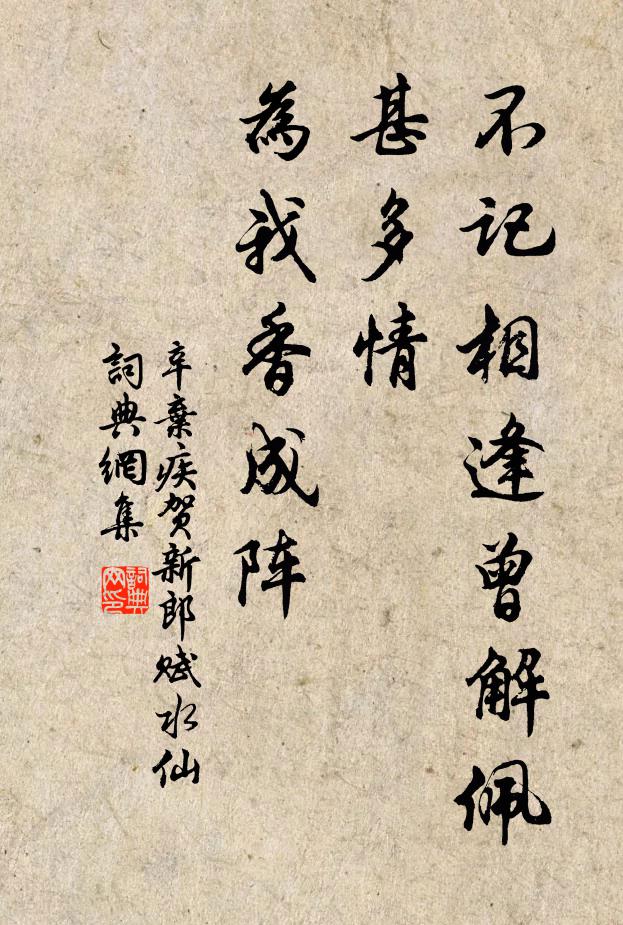 不记相逢曾解佩
甚多情
為我香成阵
辛棄疾贺新郎赋水仙
詞典網集
詞典网印